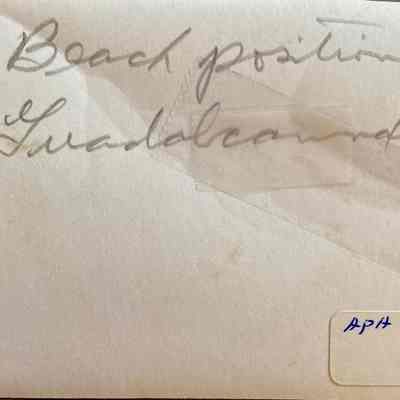 Beach position
Guadalcannd
APH